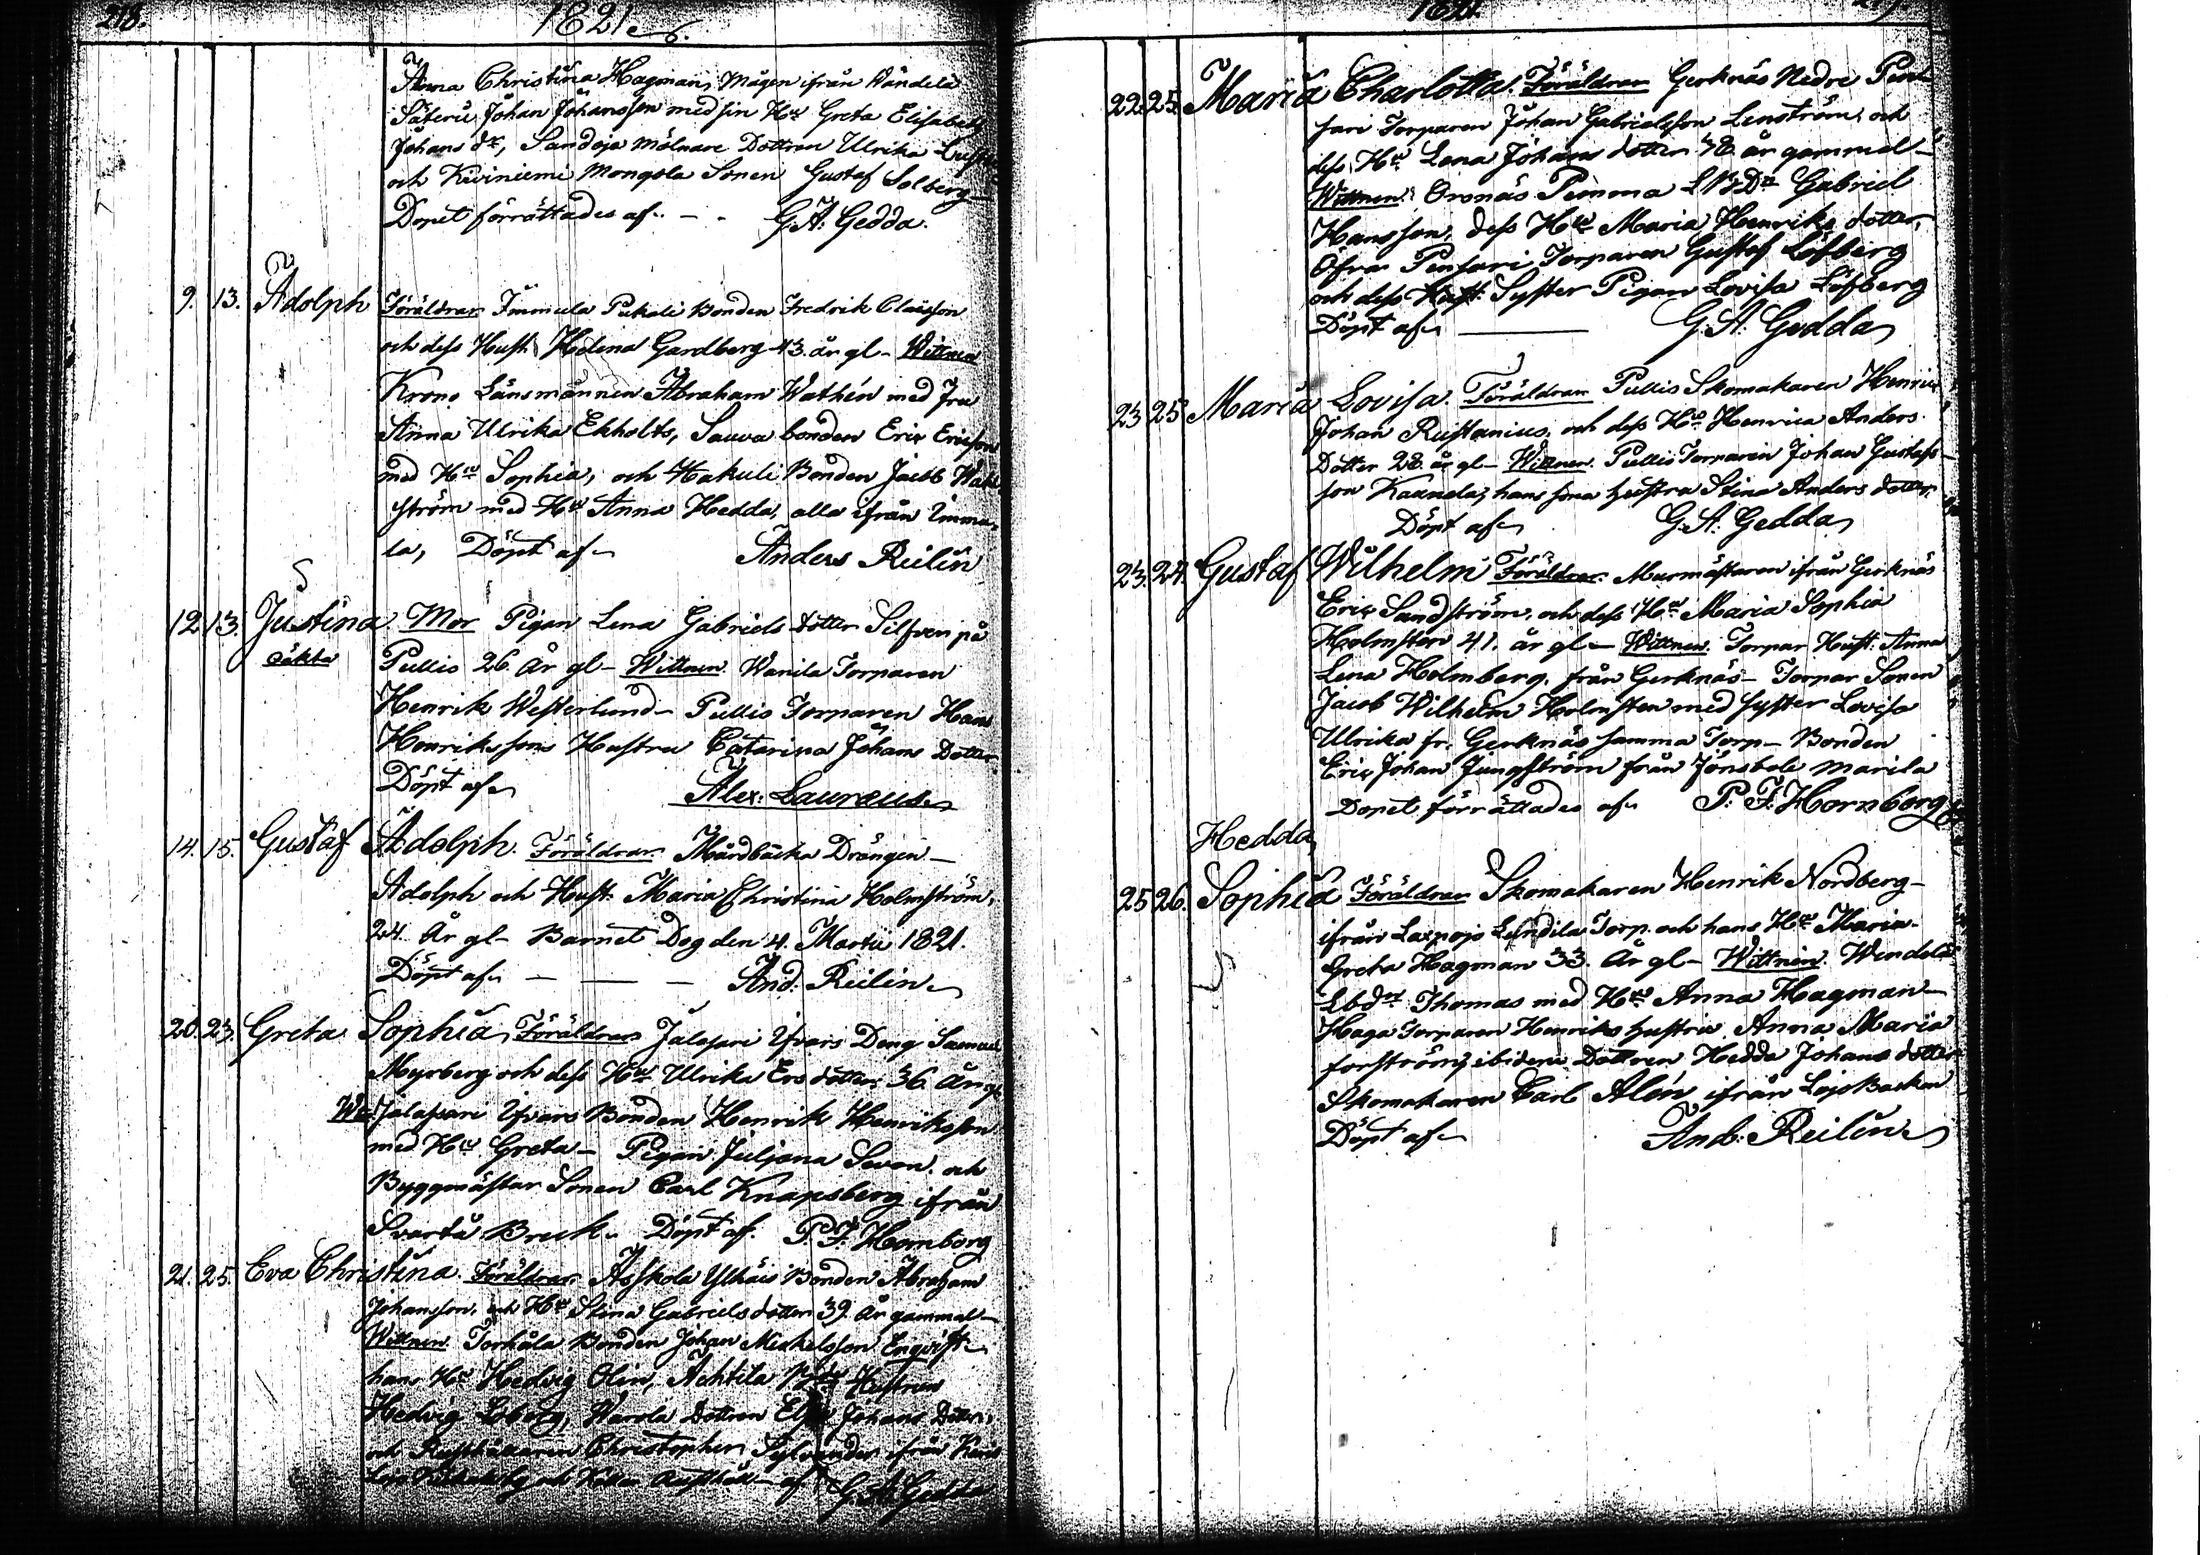 218.
1821
Anna Christina Hagman, Mågen ifrån Wändelä
Säteri Johan Johansson med sin Hu Greta Elisabeth
Johans dr, Sandoja mölnare Dottren Ulrika
och Kiviniemi Mongola Sonen Gustaf Solberg
Dopet förrättades af. G. A. Gedda.
9. 13. Adolph Föräldrar Immula Pukali Bonden Fredrik Claësson
och dess Hust. Helena Gardberg 43. år gl - Wittnen
Krono Länsmannen Abraham Wathén med Fru
Anna Ulrika Ekholts, Sauva bonden Eric Ericsson
med Hu Sophia, och Hakuli Bonden Jacob Wahl
ström med Hu Anna Hedda, alla ifrån Immu-
la, Döpt af Anders Reilin
12. 13. Justina. Mor Pigan Lena Gabriels dotter Silfven på
oäkta Pullis 26. år gl - Wittnen. Wanila Torparen
Henrik Westerlund - Pullis Torparen Hans
Henrikssons Hustru Catarina Johans Dotter
Döpt af Alex: Lauræus
14. 15. Gustaf Adolph. Föräldrar Mårdbacka Drängen -
Adolph och Hust. Maria Christina Holmström,
24. År gl - Barnet Dog den 4. Martii 1821.
Döpt af - - - And. Reilin
20. 23. Greta Sophia Föräldrar Jalassari Yfvars Dreng Samuel
Myrberg och dess Hu Ulrika Ers dotter 36. År gl
Wit. Jalassari Yfvars Bonden Henrik Henriksson
med Hu Greta - Pigan Juljana Sevon. och
Byggmästar Sonen Carl Knapsberg ifrån
Svartå Bruk. Döpt af. P. F. Hornborg
21. 25. Eva Christina. Föräldrar Bonden Abraham
Johansson, och Hu Stina Gabriels dotter 39. år gammal -
Wittnen. Torhola Bonden Johan Mickelsson Enqvist
hans Hu Hedvig Olin, Achtila Hustrun
Hedvig Loberg, Warola dottren Johans Dotter,
och Christopher Sylvander ifrån
af G. A. Gedda
1821.
22. 25. Maria Charlotta. Föräldrar Gerknäs Nedre Pen-
sari Torparen Johan Gabrielsson Lenström, och
dess Hu Lena Johans dotter 48. år gammal -
Wittnen. Oronäs Pemma Gabriel
Hansson, dess Hu Maria Henriks dotter,
Öfra Pensari Torparen Gustaf Löfberg
och dess Syster Pigan Lovisa Löfberg
Döpt af G. A. Gedda
23. 25. Maria Lovisa. Föräldrar Pullis Skomakaren Henric
Johan Rustanius, och dess Hu Henrica Anders
Dotter 28. år gl - Wittnen. Pullis Torparen Johan Gustafs-
son Kaunela, hans hustru Stina Anders dotter
Döpt af G. A. Gedda
23. 24. Gustaf Wilhelm Föräldrar. Murmästaren ifrån Gerknäs
Eric Sandström, och dess Hu Maria Sophia
Holmsten 41. år gl - Wittnen. Torpar Hust. Anna
Lena Holmberg, från Gerknäs - Torpar Sonen
Jacob Wilhelm Holmsten med syster Lovisa
Ulrika fr. Gerknäs samma Torp - Bonden
Eric Johan Jungström från Jönsböle Marila
Dopet förrättades af P. F. Hornborg
Hedda
25. 26. Sophia Föräldrar. Skomakaren Henrik Nordberg -
ifrån Laxpojo Lundila Torp. och hans Hu Maria
Greta Hagman 33. År gl - Wittnen. Wendelä
Thomas med Hu Anna Hagman -
Haga Torparen Henriks hustru Anna Maria
forsström, ibidem Dottren Hedda Johans dotter
Skomakaren Carl Alén ifrån Lojo Backan
Döpt af And: Reilin